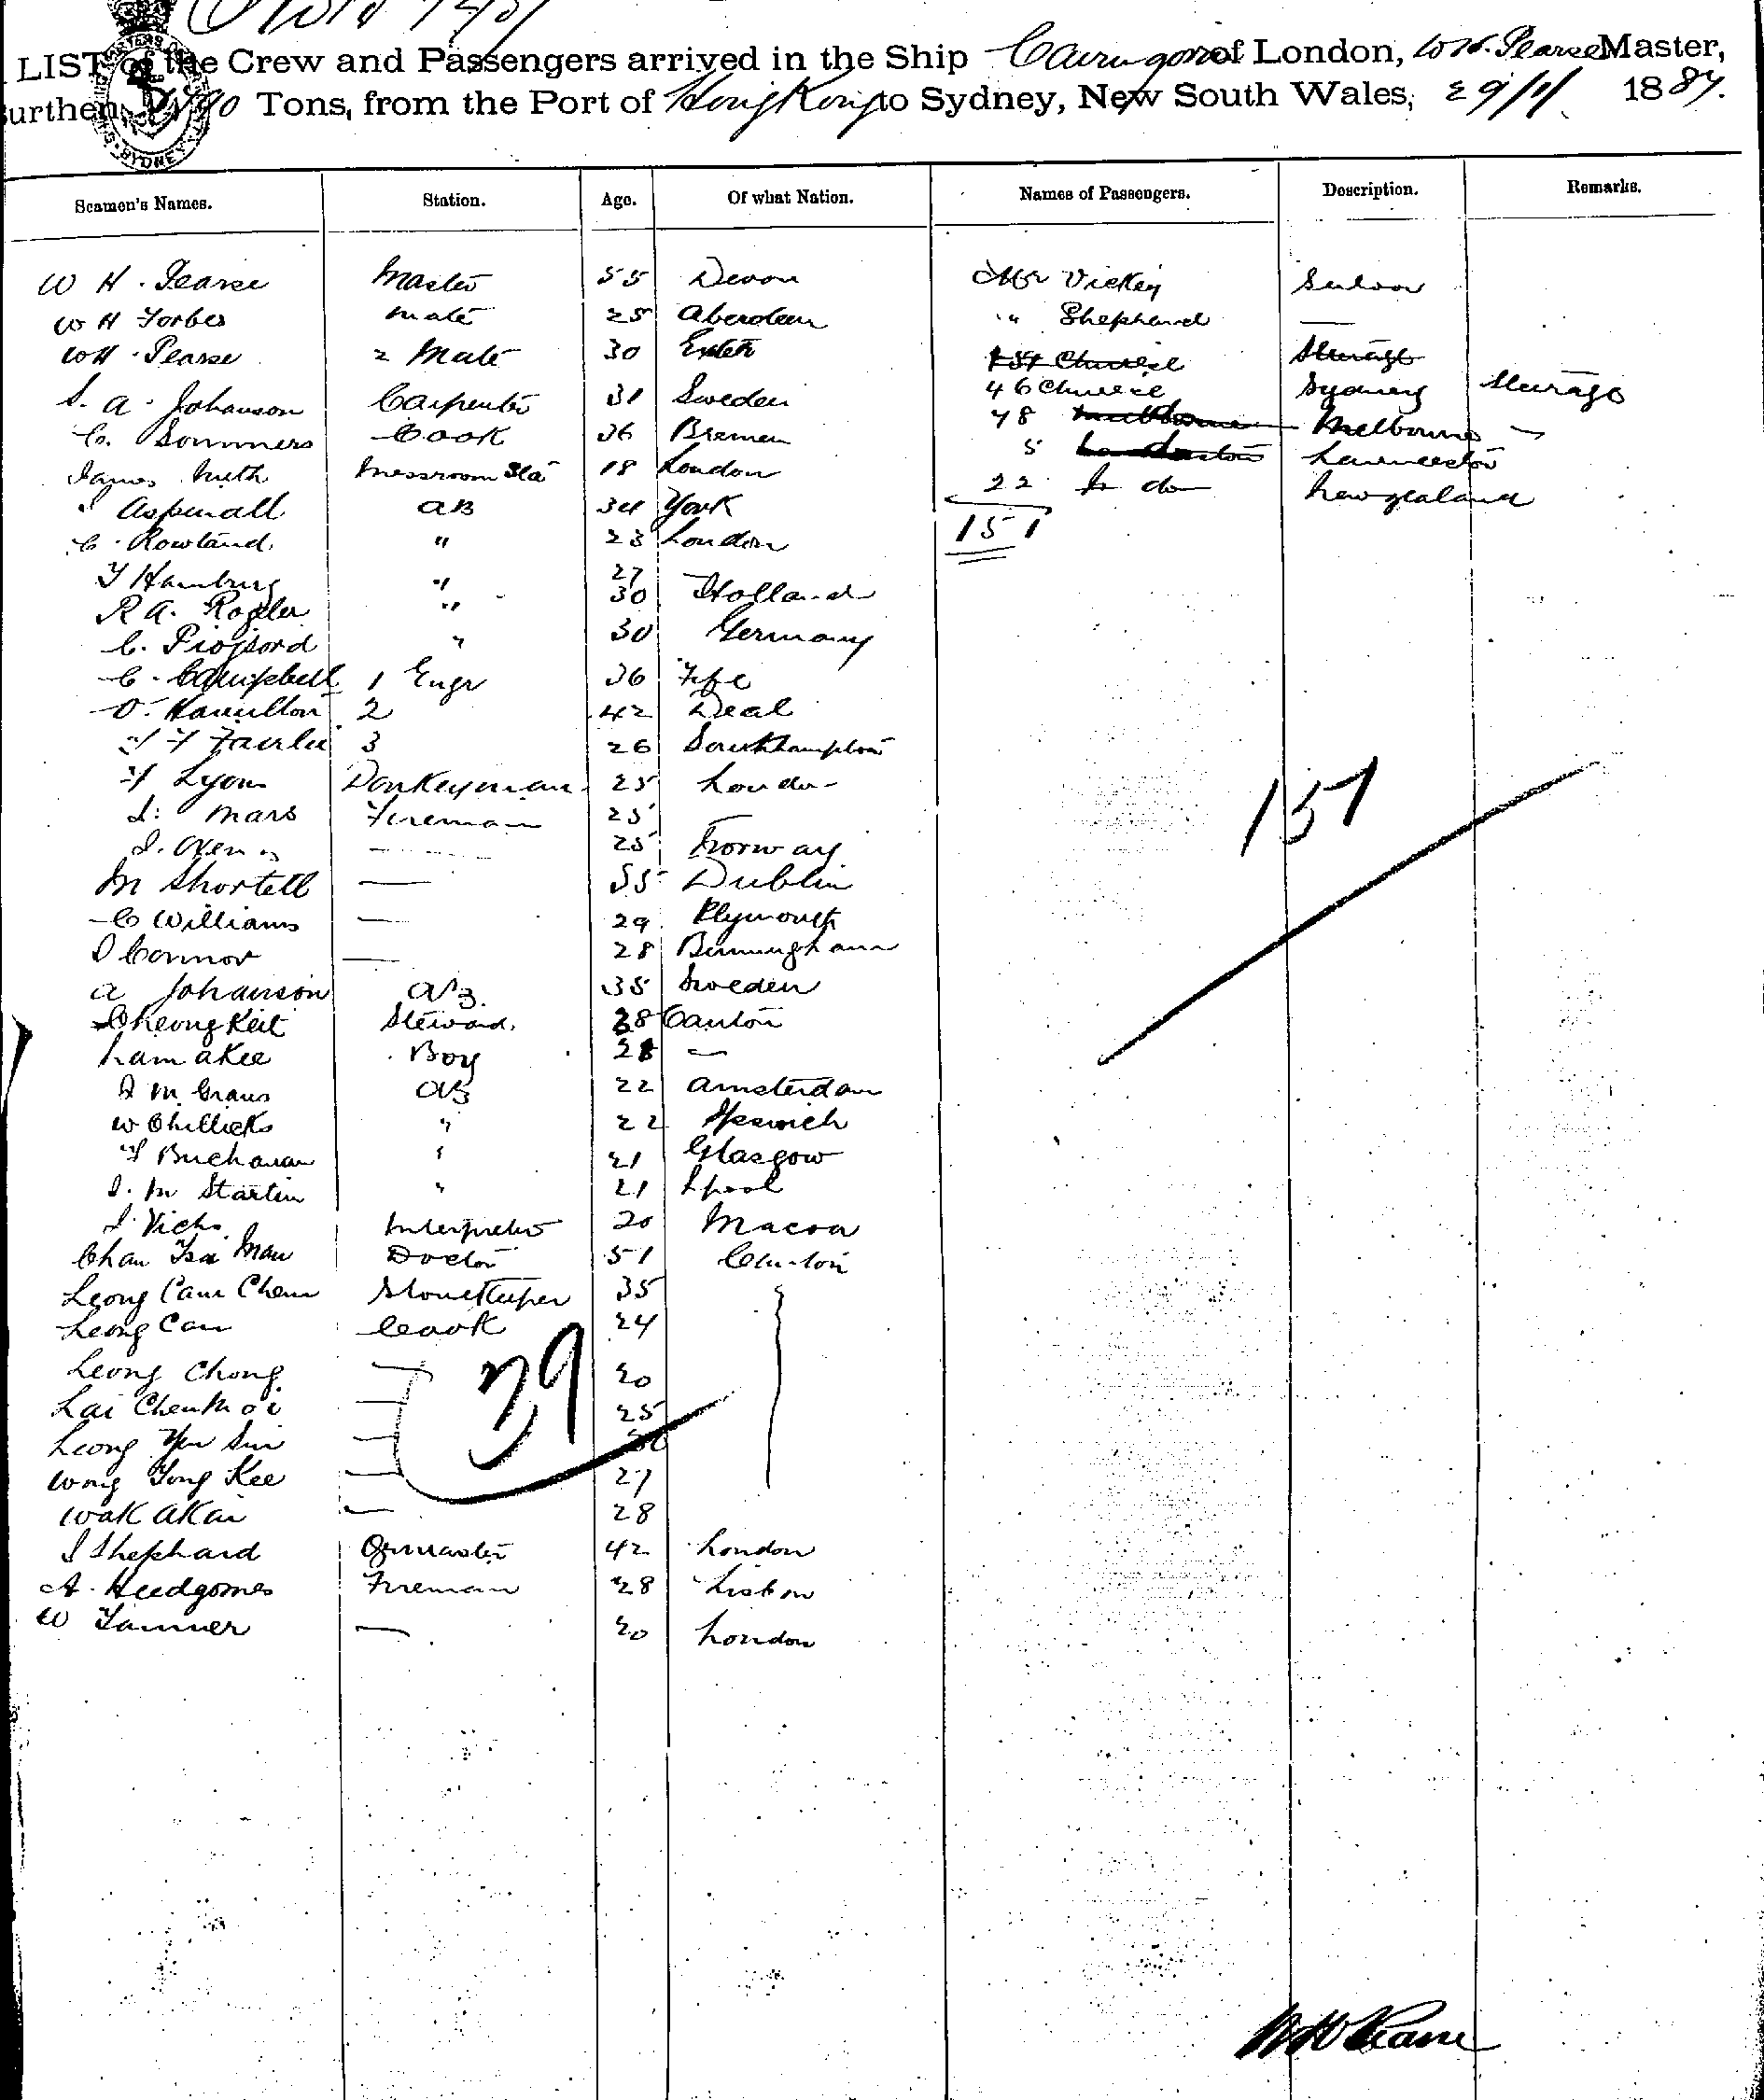 LIST of the Crew and Passengers arrived in the Ship of London, W H. Pearse Master,
Burthen Tons, from the Port of Hong Kong to Sydney, New South Wales, 29/ 1887.
Seamen's Names. Station. Age. Of what Nation. Names of Passengers. Description. Remarks.
W H. Pearse Master 55 Devon Mr Vickey Saloon
W H Forbes Mate 25 Aberdeen " Shephard —
W H. Pearse 2 Mate 30 Exeter 151 Chinese Steerage
S. A. Johanson Carpenter 31 Sweden 46 Chinese Sydney Steerage
C. Sommers Cook 36 Bremen 78 Melbourne Melbourne
James 18 London 5 Launceston Launceston
J Aspinall AB 34 York 22 do New Zealand
C. Rowland " 23 London 151
J Hamburg " 27
R A. " 30 Holland
C. " 30 Germany
C. Campbell 1 Engr 36 Fife
D. Hamilton 2 42 Deal
Fairlie 3 26 Southampton
Lyon Donkeyman 25 London
Mars Fireman 25
— 25 Norway
M Shortell — 55 Dublin
C Williams — 29 Plymouth
J Connor — 28 Birmingham
A Johanson AB. 35 Sweden
Cheong Keit Steward. 38 Canton
Lam Akee Boy 28 —
J M. AB 22 Amsterdam
W Chillicks " 22 Ipswich
Buchanan " 21 Glasgow
J. M Startin " 21 Lpool
J. Interpreter 20 Macoa
Chan Tsa Man Doctor 51 Canton
Leong Cam Chem Storekeeper 35
Leong Can Cook 24
Leong Chong — 20
Lai Chen Moi — 25
Leong Yen Sin —
Wong Yong Kee — 27
Wak Akai — 28
J Shephard Qrmaster 42 London
A. Fireman 28 Lisbon
W Tanner — 20 London
39
151
W H Pearse